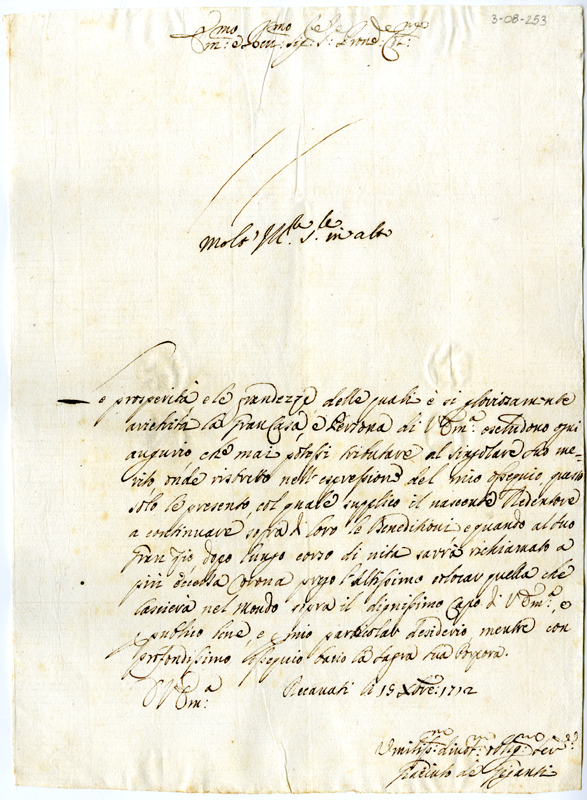 3-08-253
Em:mo e Rev:mo Sig:re S:re Prone Col:mo
Molt' Ill:re S:re in alto
Le prosperità e le grandezze delle quali è si gloriosamente
arichita la gran Casa e Persona di V Em:a escludono ogni
augurio che mai potessi tributare al singolare suo me=
rito onde ristretto nell'espressione del mio ossequio questo
solo le presento col quale supplico il nascente Redentore
a continuare sopra di loro le Benedittioni e quando al suo
gran Zio dopo lungo corso di vita sarrà richiamato a
più eccelsa Corona prego l'altissimo colocar quella che
lascierà nel Mondo sopra il dignissimo Capo di V Em:a, e
publico bene, e mio particolar desiderio mentre con
profondissimo ossequio bacio la sagra sua Porpora.
D V Em:a
Recanati li 15 Xbre: 1712
Umiliss:mo divot:mo oblig:mo Ser:re
Giacinto de Giganti